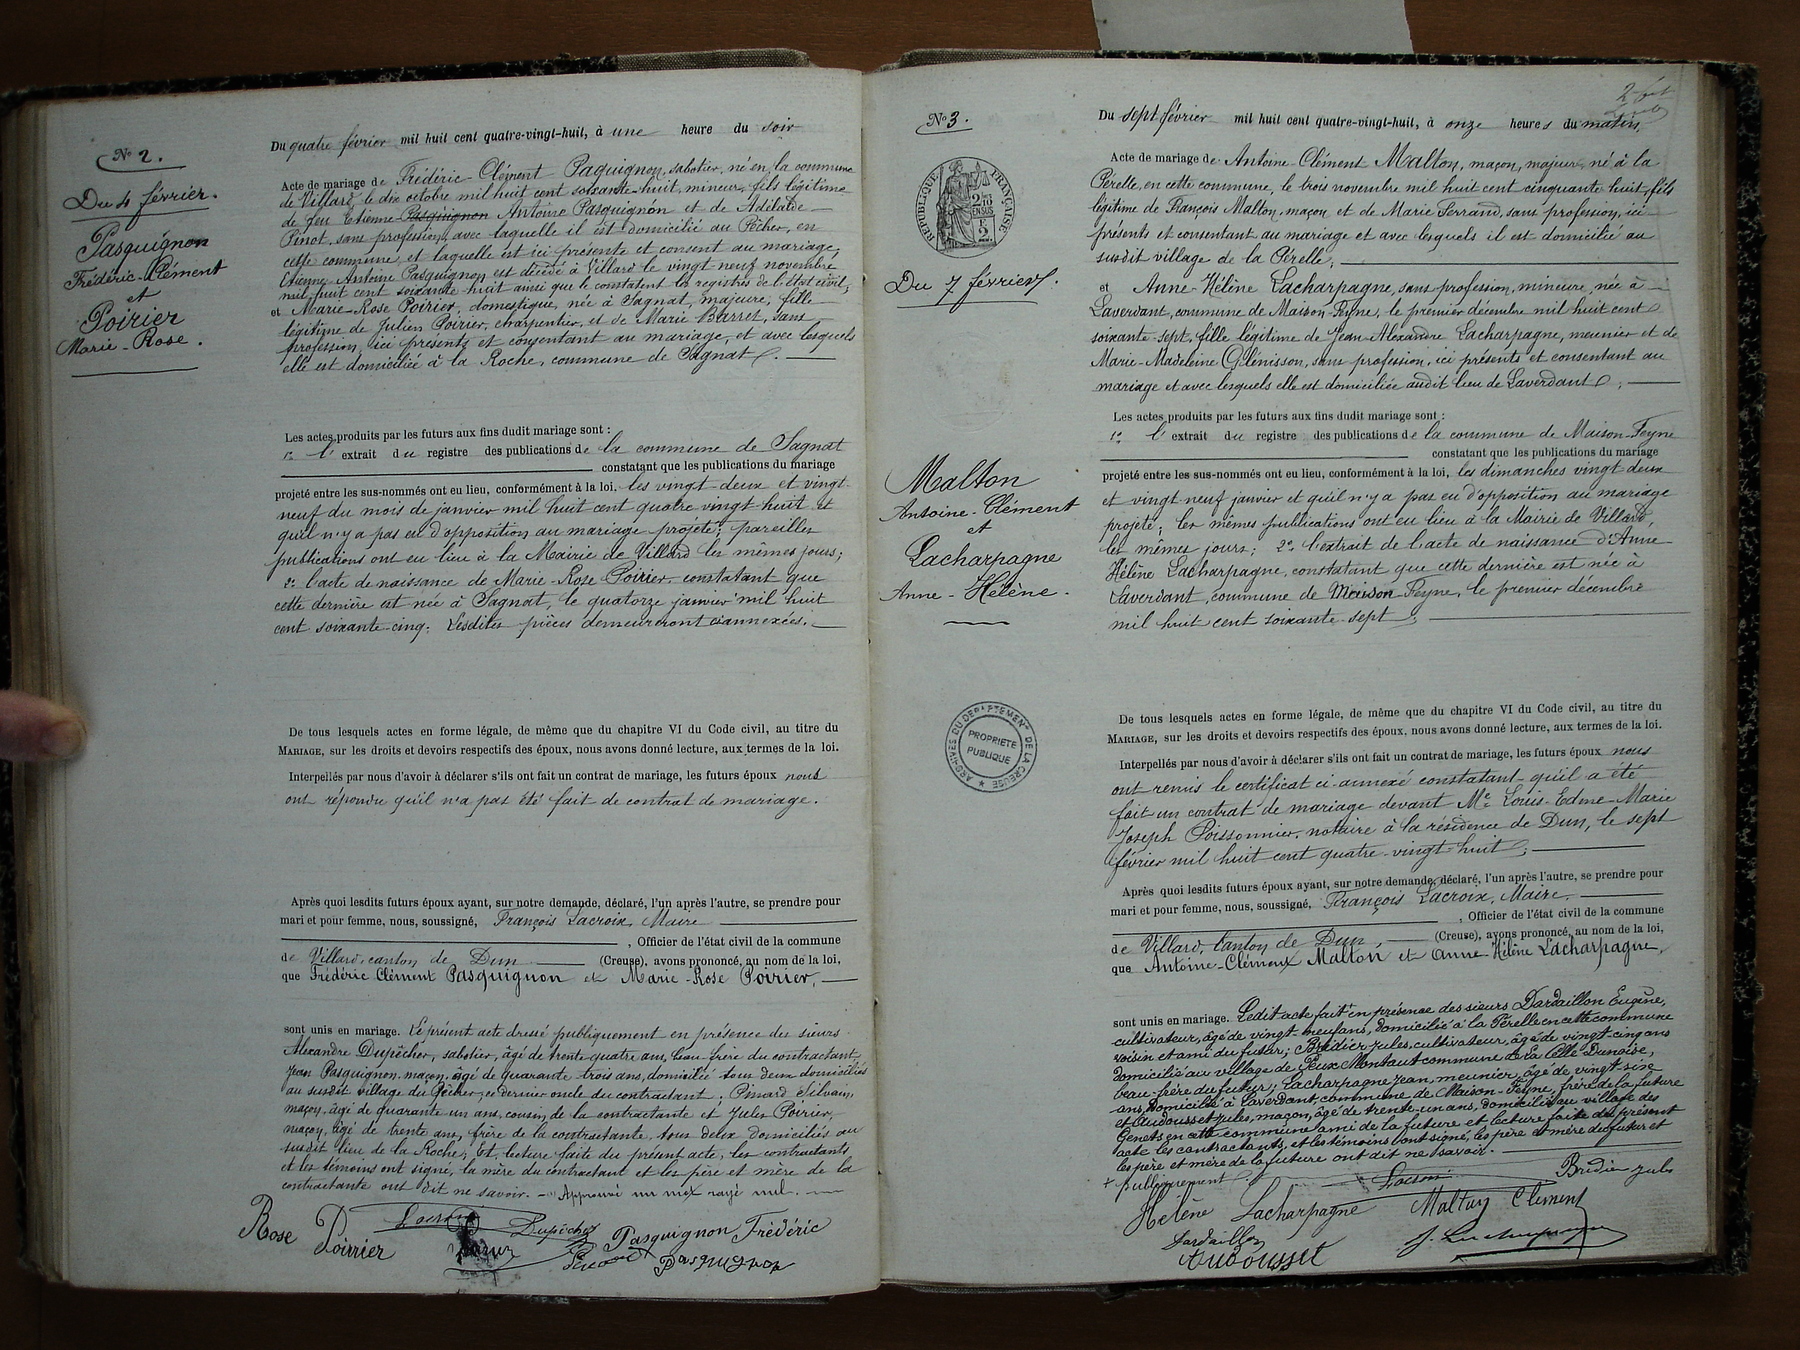 N° 2.
Du 4 février.
Pasquignon
Frédéric-Clément
et
Poirier
Marie-Rose.
Du quatre février mil huit cent quatre-vingt-huit, à une heure du soir
Acte de mariage de Frédéric-Clément Paquignon, sabotier, né en la commune
de Villard le dix octobre mil huit cent soixante-huit, mineur, fils légitime
de feu Etienne Pasquignon Antoine Pasquignon et de Adélaïde
Pinot, sans profession, avec laquelle il est domicilié au Pêcher, en
cette commune et laquelle est ici présente et consent au mariage,
Etienne Antoine Pasquignon est décédé à Villard le vingt neuf novembre
mil huit cent soixante huit ainsi que le constatent les registres de l'état civil;
et Marie-Rose Poirier, domestique, née à Sagnat, majeure, fille
légitime de Julien Poirier, charpentier, et de Marie Barret, sans
profession, ici présents et consentant au mariage, et avec lesquels
elle est domiciliée à la Roche, commune de Sagnat.
Les actes produits par les futurs aux fins dudit mariage sont :
1° l'extrait du registre des publications de la commune de Sagnat
constatant que les publications du mariage
projeté entre les sus-nommés ont eu lieu, conformément à la loi, les vingt deux et vingt
neuf du mois de janvier mil huit cent quatre vingt huit et
qu'il n'y a pas eu d'opposition au mariage projeté; pareilles
publications ont eu lieu à la Mairie de Villard les mêmes jours;
2° l'acte de naissance de Marie-Rose Poirier constatant que
cette dernière est née à Sagnat, le quatorze janvier mil huit
cent soixante-cinq; Lesdites pièces demeureront ci annexées.
De tous lesquels actes en forme légale, de même que du chapitre VI du Code civil, au titre du
MARIAGE, sur les droits et devoirs respectifs des époux, nous avons donné lecture, aux termes de la loi.
Interpellés par nous d'avoir à déclarer s'ils ont fait un contrat de mariage, les futurs époux nous
ont répondu qu'il n'a pas été fait de contrat de mariage.
Après quoi lesdits futurs époux ayant, sur notre demande, déclaré, l'un après l'autre, se prendre pour
mari et pour femme, nous, soussigné, François Lacroix, Maire
, Officier de l'état civil de la commune
de Villard, canton de Dun (Creuse), avons prononcé, au nom de la loi,
que Frédéric Clément Pasquignon et Marie-Rose Poirier,
sont unis en mariage. Le présent acte dressé publiquement en présence des sieurs
Alexandre Dupêcher, sabotier, âgé de trente quatre ans, beau-frère du contractant,
Jean Pasquignon, maçon, âgé de quarante trois ans, domicilié tous deux domiciliés
au susdit village du Pêcher, ce dernier oncle du contractant; Pinard Silvain,
maçon, âgé de quarante un ans, cousin de la contractante et Jules Poirier,
maçon, âgé de trente ans, frère de la contractante, tous deux domiciliés au
susdit lieu de la Roche; Et, lecture faite du présent acte, les contractants
et les témoins ont signé, la mère du contractant et les père et mère de la
contractante ont dit ne savoir. Approuvé un mot rayé nul.
Rose Poirier Lacroix Dupêcher Pasquignon Frédéric
Pinard Pasquignon
N° 3.
Du 7 février.
Malton
Antoine-Clément
et
Lacharpagne
Anne-Hélène.
REPUBLIQUE FRANÇAISE
2/10 EN SUS
ARCHIVES DU DEPARTEMENT DE LA CREUSE
PROPRIETE
PUBLIQUE
Du sept février mil huit cent quatre-vingt-huit, à onze heures du matin,
Acte de mariage de Antoine-Clément Malton, maçon, majeur, né à la
Pérelle, en cette commune, le trois novembre mil huit cent cinquante huit, fils
légitime de François Malton, maçon et de Marie Ferrand, sans profession, ici
présents et consentant au mariage et avec lesquels il est domicilié au
susdit village de la Pérelle;
et Anne-Hélène Lacharpagne, sans profession, mineure, née à
Laverdant, commune de Maison-Feyne, le premier décembre mil huit cent
soixante-sept, fille légitime de Jean-Alexandre Lacharpagne, meunier et de
Marie-Madeleine Glénisson, sans profession, ici présents et consentant au
mariage et avec lesquels elle est domiciliée audit lieu de Laverdant;
Les actes produits par les futurs aux fins dudit mariage sont :
1° l'extrait du registre des publications de la commune de Maison-Feyne
constatant que les publications du mariage
projeté entre les sus-nommés ont eu lieu, conformément à la loi, les dimanches vingt deux
et vingt neuf janvier et qu'il n'y a pas eu d'opposition au mariage
projeté; les mêmes publications ont eu lieu à la Mairie de Villard,
les mêmes jours; 2° l'extrait de l'acte de naissance d'Anne
Hélène Lacharpagne, constatant que cette dernière est née à
Laverdant, commune de Maison Feyne, le premier décembre
mil huit cent soixante-sept;
De tous lesquels actes en forme légale, de même que du chapitre VI du Code civil, au titre du
MARIAGE, sur les droits et devoirs respectifs des époux, nous avons donné lecture, aux termes de la loi.
Interpellés par nous d'avoir à déclarer s'ils ont fait un contrat de mariage, les futurs époux nous
ont remis le certificat ci-annexé constatant qu'il a été
fait un contrat de mariage devant Me Louis-Edme-Marie
Joseph Poissonnier, notaire à la résidence de Dun, le sept
février mil huit cent quatre-vingt-huit;
Après quoi lesdits futurs époux ayant, sur notre demande, déclaré, l'un après l'autre, se prendre pour
mari et pour femme, nous, soussigné, François Lacroix, Maire
, Officier de l'état civil de la commune
de Villard, Canton de Dun, (Creuse), avons prononcé, au nom de la loi,
que Antoine-Clément Malton et Anne Hélène Lacharpagne,
sont unis en mariage. Ledit acte fait + en présence des sieurs Dardaillon Eugène,
cultivateur, âgé de vingt-neuf ans, domicilié à la Pérelle en cette commune
voisin et ami du futur; Bridier Jules, cultivateur, âgé de vingt-cinq ans
domicilié au village de Peux Montaut commune de la Celle Dunoise,
beau-frère du futur; Lacharpagne Jean, meunier, âgé de vingt-six
ans, domicilié à Laverdant, commune de Maison-Feyne, frère de la future
et Audousset Jules, maçon, âgé de trente-un ans, domicilié au village des
Genets en cette commune ami de la future et lecture faite du présent
acte les contractants, et les témoins l'ont signé, les père et mère du futur et
les père et mère de la future ont dit ne savoir.
+ publiquement Lacroix Bridier Jules
Hélène Lacharpagne Maltay Clément
Dardaillon J. Lacharpagne
Audousset